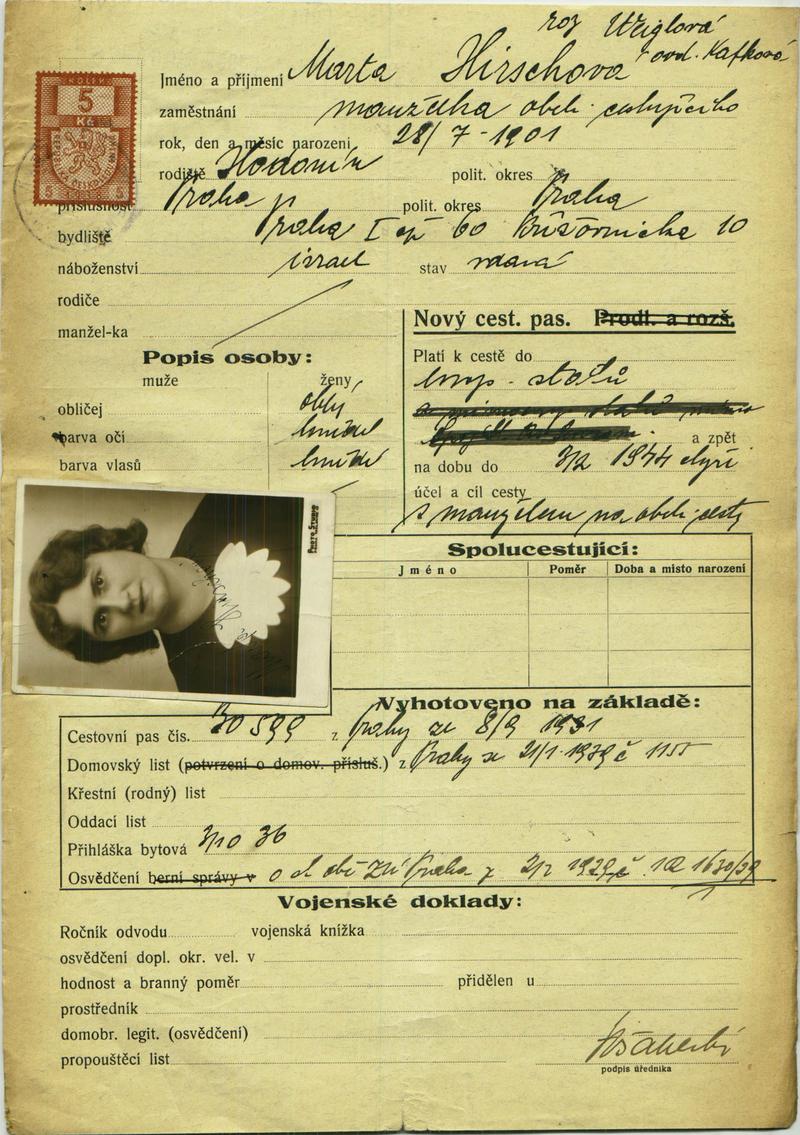 roz Weiglová
ovd. Kafková
KOLEK
5
Kč
Jméno a příjmení Marta Hirschova
zaměstnání manželka obch. cestujícího
rok, den a měsíc narození 28/7 - 1901
rodiště Hodonín polit. okres
příslušnost Praha polit. okres Praha
bydliště Praha I čp 60 10
náboženství israel stav vdaná
rodiče
manžel-ka
Nový cest. pas. Prodl. a rozš.
Platí k cestě do
evrop. států
a zpět
na dobu do 3/2 1944
účel a cíl cesty
s manželem na obch. cesty
Popis osoby:
muže ženy
obličej oblý
barva očí hnědé
barva vlasů hnědé
PHOTO STUDIO
Spolucestující:
Jméno Poměr Doba a místo narození
Vyhotoveno na základě:
Cestovní pas čís. 30599 z Prahy ze 8/9 1931
Domovský list (potvrzení o domov. přísluš.) z Prahy ze 21/1. 1939 č 1155
Křestní (rodný) list
Oddací list
Přihláška bytová 3/10 36
Osvědčení berní správy v Praha 1630/39
Vojenské doklady:
Ročník odvodu vojenská knížka
osvědčení dopl. okr. vel. v
hodnost a branný poměr přidělen u
prostředník
domobr. legit. (osvědčení)
propouštěcí list
podpis úředníka